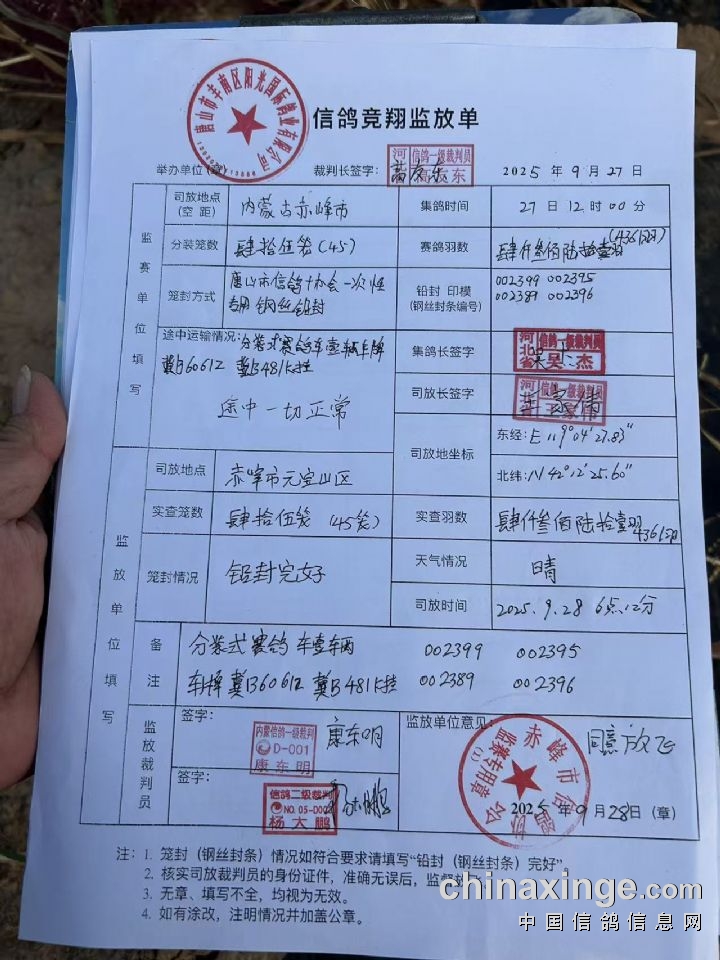 唐山市丰南区阳光国际鸽业有限公司
信鸽竞翔监放单
举办单位(章)
裁判长签字:
河 信鸽一级裁判员
2025 年 9 月 27 日
监赛单位填写
司放地点(空 距) 内蒙古赤峰市 集鸽时间 27 日 12 时 00 分
分装笼数 肆拾伍笼(45) 赛鸽羽数 肆仟叁佰陆拾壹羽(4361羽)
笼封方式 唐山市信鸽协会一次性专用钢丝铅封
铅封 印模(钢丝封条编号) 002399 002395
002389 002396
途中运输情况: 分装式赛鸽车壹辆车牌
冀B60612 冀B481K挂
途中一切正常
集鸽长签字 河北省 信鸽一级裁判员 吴杰
司放长签字 河北省 信鸽一级裁判员
司放地坐标 东经: E 119°04'27.83"
北纬: N 42°12'25.60"
监放单位填写
司放地点 赤峰市元宝山区
实查笼数 肆拾伍笼 (45笼) 实查羽数 肆仟叁佰陆拾壹羽 4361羽
笼封情况 铅封完好 天气情况 晴
司放时间 2025.9.28 6点12分
备注 分装式赛鸽车壹辆 002399 002395
车牌冀B60612 冀B481K挂 002389 002396
监放裁判员
签字: 内蒙信鸽一级裁判 D-001 康东明 康东明
签字: 信鸽二级裁判 NO.05-D00 杨大鹏
监放单位意见: 同意放飞
赤峰市信鸽协会 监赛专用章(1)
2025 年 9 月 28 日 (章)
注: 1. 笼封(钢丝封条)情况如符合要求请填写“铅封(钢丝封条)完好”
2. 核实司放裁判员的身份证件,准确无误后,监督放
3. 无章、填写不全,均视为无效。
4. 如有涂改,注明情况并加盖公章。
chinaxinge.com
中国信鸽信息网